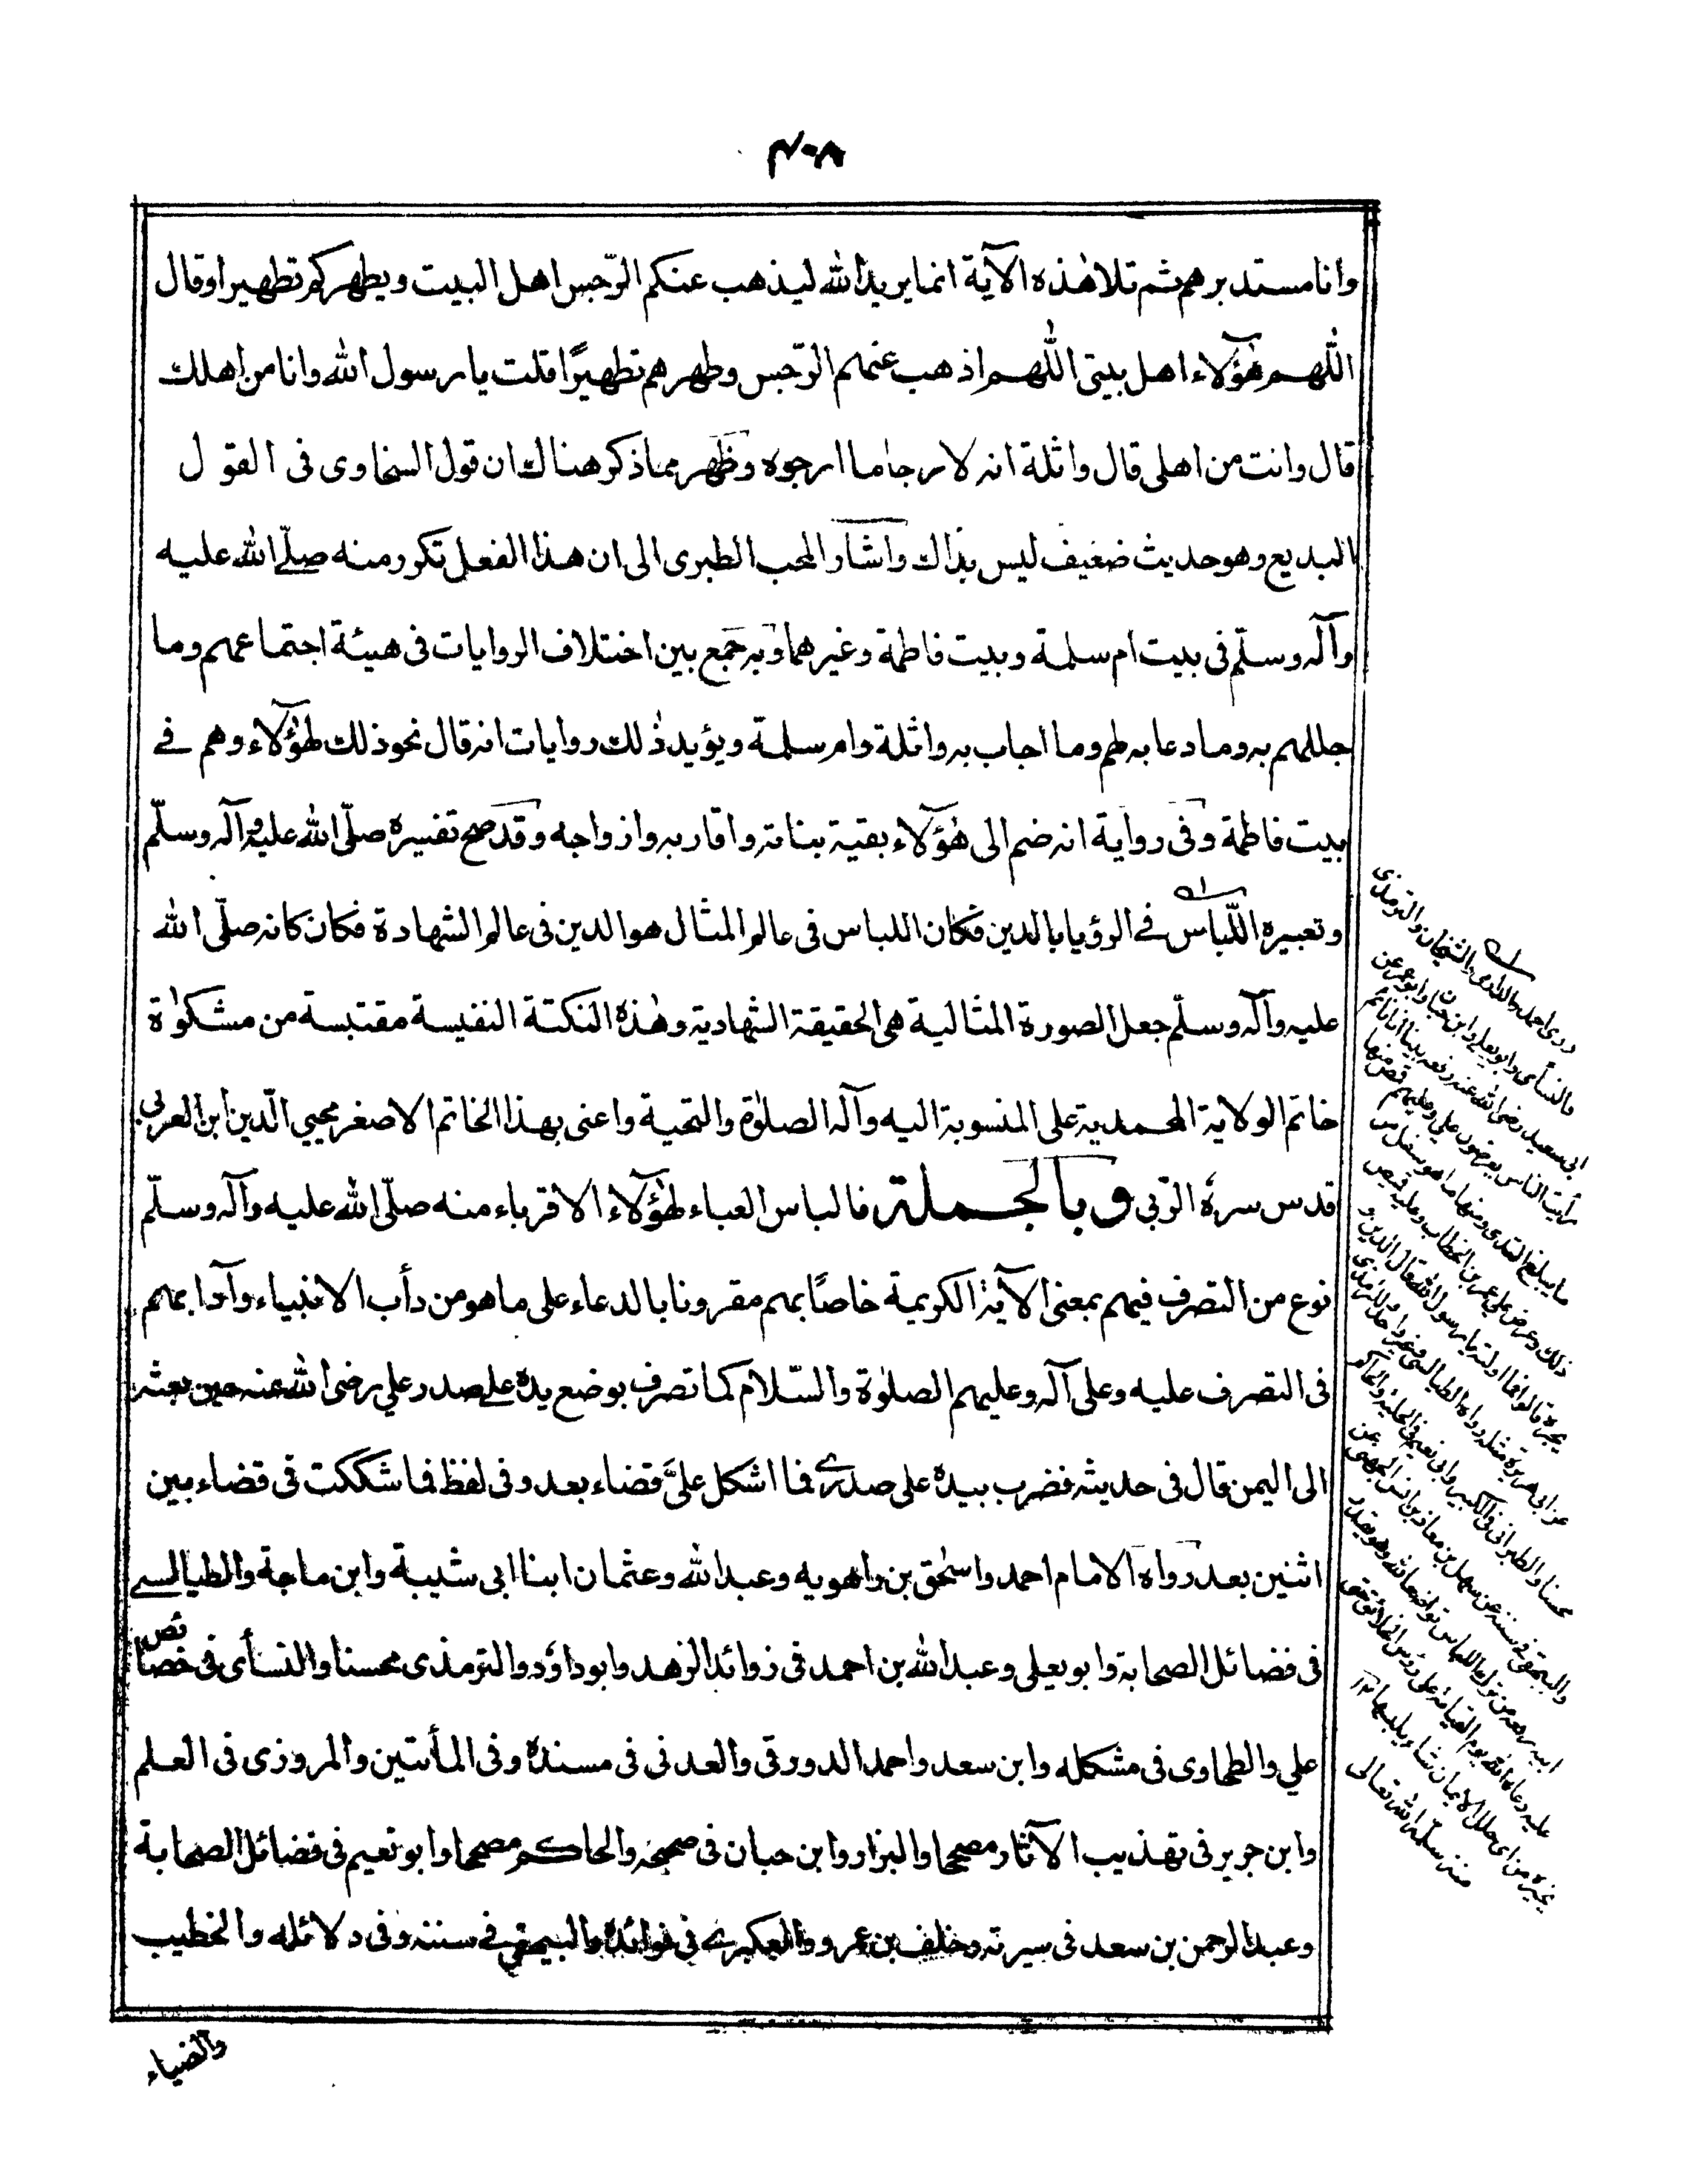 ٧٠٣
وانا مستدبرهم ثم تلا هٰذه الآية انما يريد الله ليذهب عنكم الرّجس اهل البيت ويطهركم تطهيرا وقال
اللّٰهم هٰؤلاء اهل بيتى اللّٰهم اذهب عنهم الرّجس وطهرهم تطهيرًا قلت يا رسول الله وانا من اهلك
قال وانت من اهلى قال واثلة انه لارجا ما ارجوه وظهر مما ذكر هنالك ان قول السخاوى فى القول
البديع وهو حديث ضعيف ليس بذاك واشار المحب الطبرى الى ان هذا الفعل تكرر منه صلّے الله عليه
وآله وسلّم فى بيت ام سلمة وبيت فاطمة وغيرهما وبه جمع بين اختلاف الروايات فى هيئة اجتماعهم وما
جللهم به وما دعا به لهم وما اجاب به واثلة وام سلمة ويؤيد ذٰلك روايات انه قال نحو ذلك لهٰؤلاء وهم فے
بيت فاطمة وفى رواية انه ضم الى هٰؤلاء بقية بناته واقاربه وازواجه وقد صح تفسيره صلّى الله عليه وآله وسلّم
وتعبيره اللّباس فے الرؤيا بالدين فكان اللباس فى عالم المثال هو الدين فى عالم الشهادة فكان كانه صلّى الله
عليه وآله وسلّم جعل الصورة المثالية هى الحقيقة الشهادية وهٰذه النكتة النفيسة مقتبسة من مشكوٰة
خاتم الولاية المحمدية على المنسوبة اليه وآله الصلوٰة والتحية واعنى بهذا الخاتم الاصغر محيي الدّين ابن العربى
قدس سره الرّبى وبالجملة فالباس العباء لهٰؤلاء الاقرباء منه صلّى الله عليه وآله وسلّم
نوع من التصرف فيهم بمعنى الآية الكريمة خاصًا بهم مقرونا بالدعاء على ما هو من دأب الانبياء وآدابهم
فى التصرف عليه وعلى آله وعليهم الصلوٰة والسّلام كما تصرف بوضع يده علے صدر علي رضى الله عنه حين بعثه
الى اليمن قال فى حديثه فضرب بيده على صدرے فما اشكل علىَّ قضاء بعد وفى لفظ فما شككت فى قضاء بين
اثنين بعد رواه الامام احمد واسحٰق بن راهويه وعبد الله وعثمان ابنا ابى شيبة وابن ماجة والطيالسے
فى فضائل الصحابة وابو يعلى وعبد الله بن احمد فى زوائد الزهد وابو داوٗد والترمذى محسنا والنسأى فى خصائص
علي والطحاوى فى مشكله وابن سعد واحمد الدورقى والعدنى فى مسنده وفى المأتين والمروزى فى العلم
وابن جرير فى تهذيب الآثار مصححا والبزار وابن حبان فى صحيحه والحاكم مصححا وابو نعيم فى فضائل الصحابة
وعبد الرحمن بن سعد فى سيرته وخلف بن عمرو والعكبرے فى فوائده والبيهقى فے سننه وفى دلائله والخطيب
والضياء
روى احمد والشيخان والترمذى
والنسأى وابو يعلے وابن حبان وابو عمر عن
ابى سعيد رضى الله عنه رفعه بينا انا نائم
رأيت الناس يعرضون علي وعليهم قمص منها
ما يبلغ الثدى ومنها ما هو سفل من
ذلك وعرض علي عمر بن الخطاب وعليه قميص
يجره قالوا فما اولته يا رسول الله قال الدين و
عن ابى هريرة مثله رواه الطيالسى
محسنا والطبرانى فى الكبير وابى نعيم فى الحلية والحاكم
والبيهقى فى سننه عن سهل بن معاذ بن انس الجهنى عن
ابيه رفعه من ترك اللباس تواضعا لله وهو يقدر
عليه دعاه الله يوم القيامة على رؤس الخلائق حتى
يخيره من اى حلل الايمان شاء يلبسها ١٢
منه سلمه الله تعالى